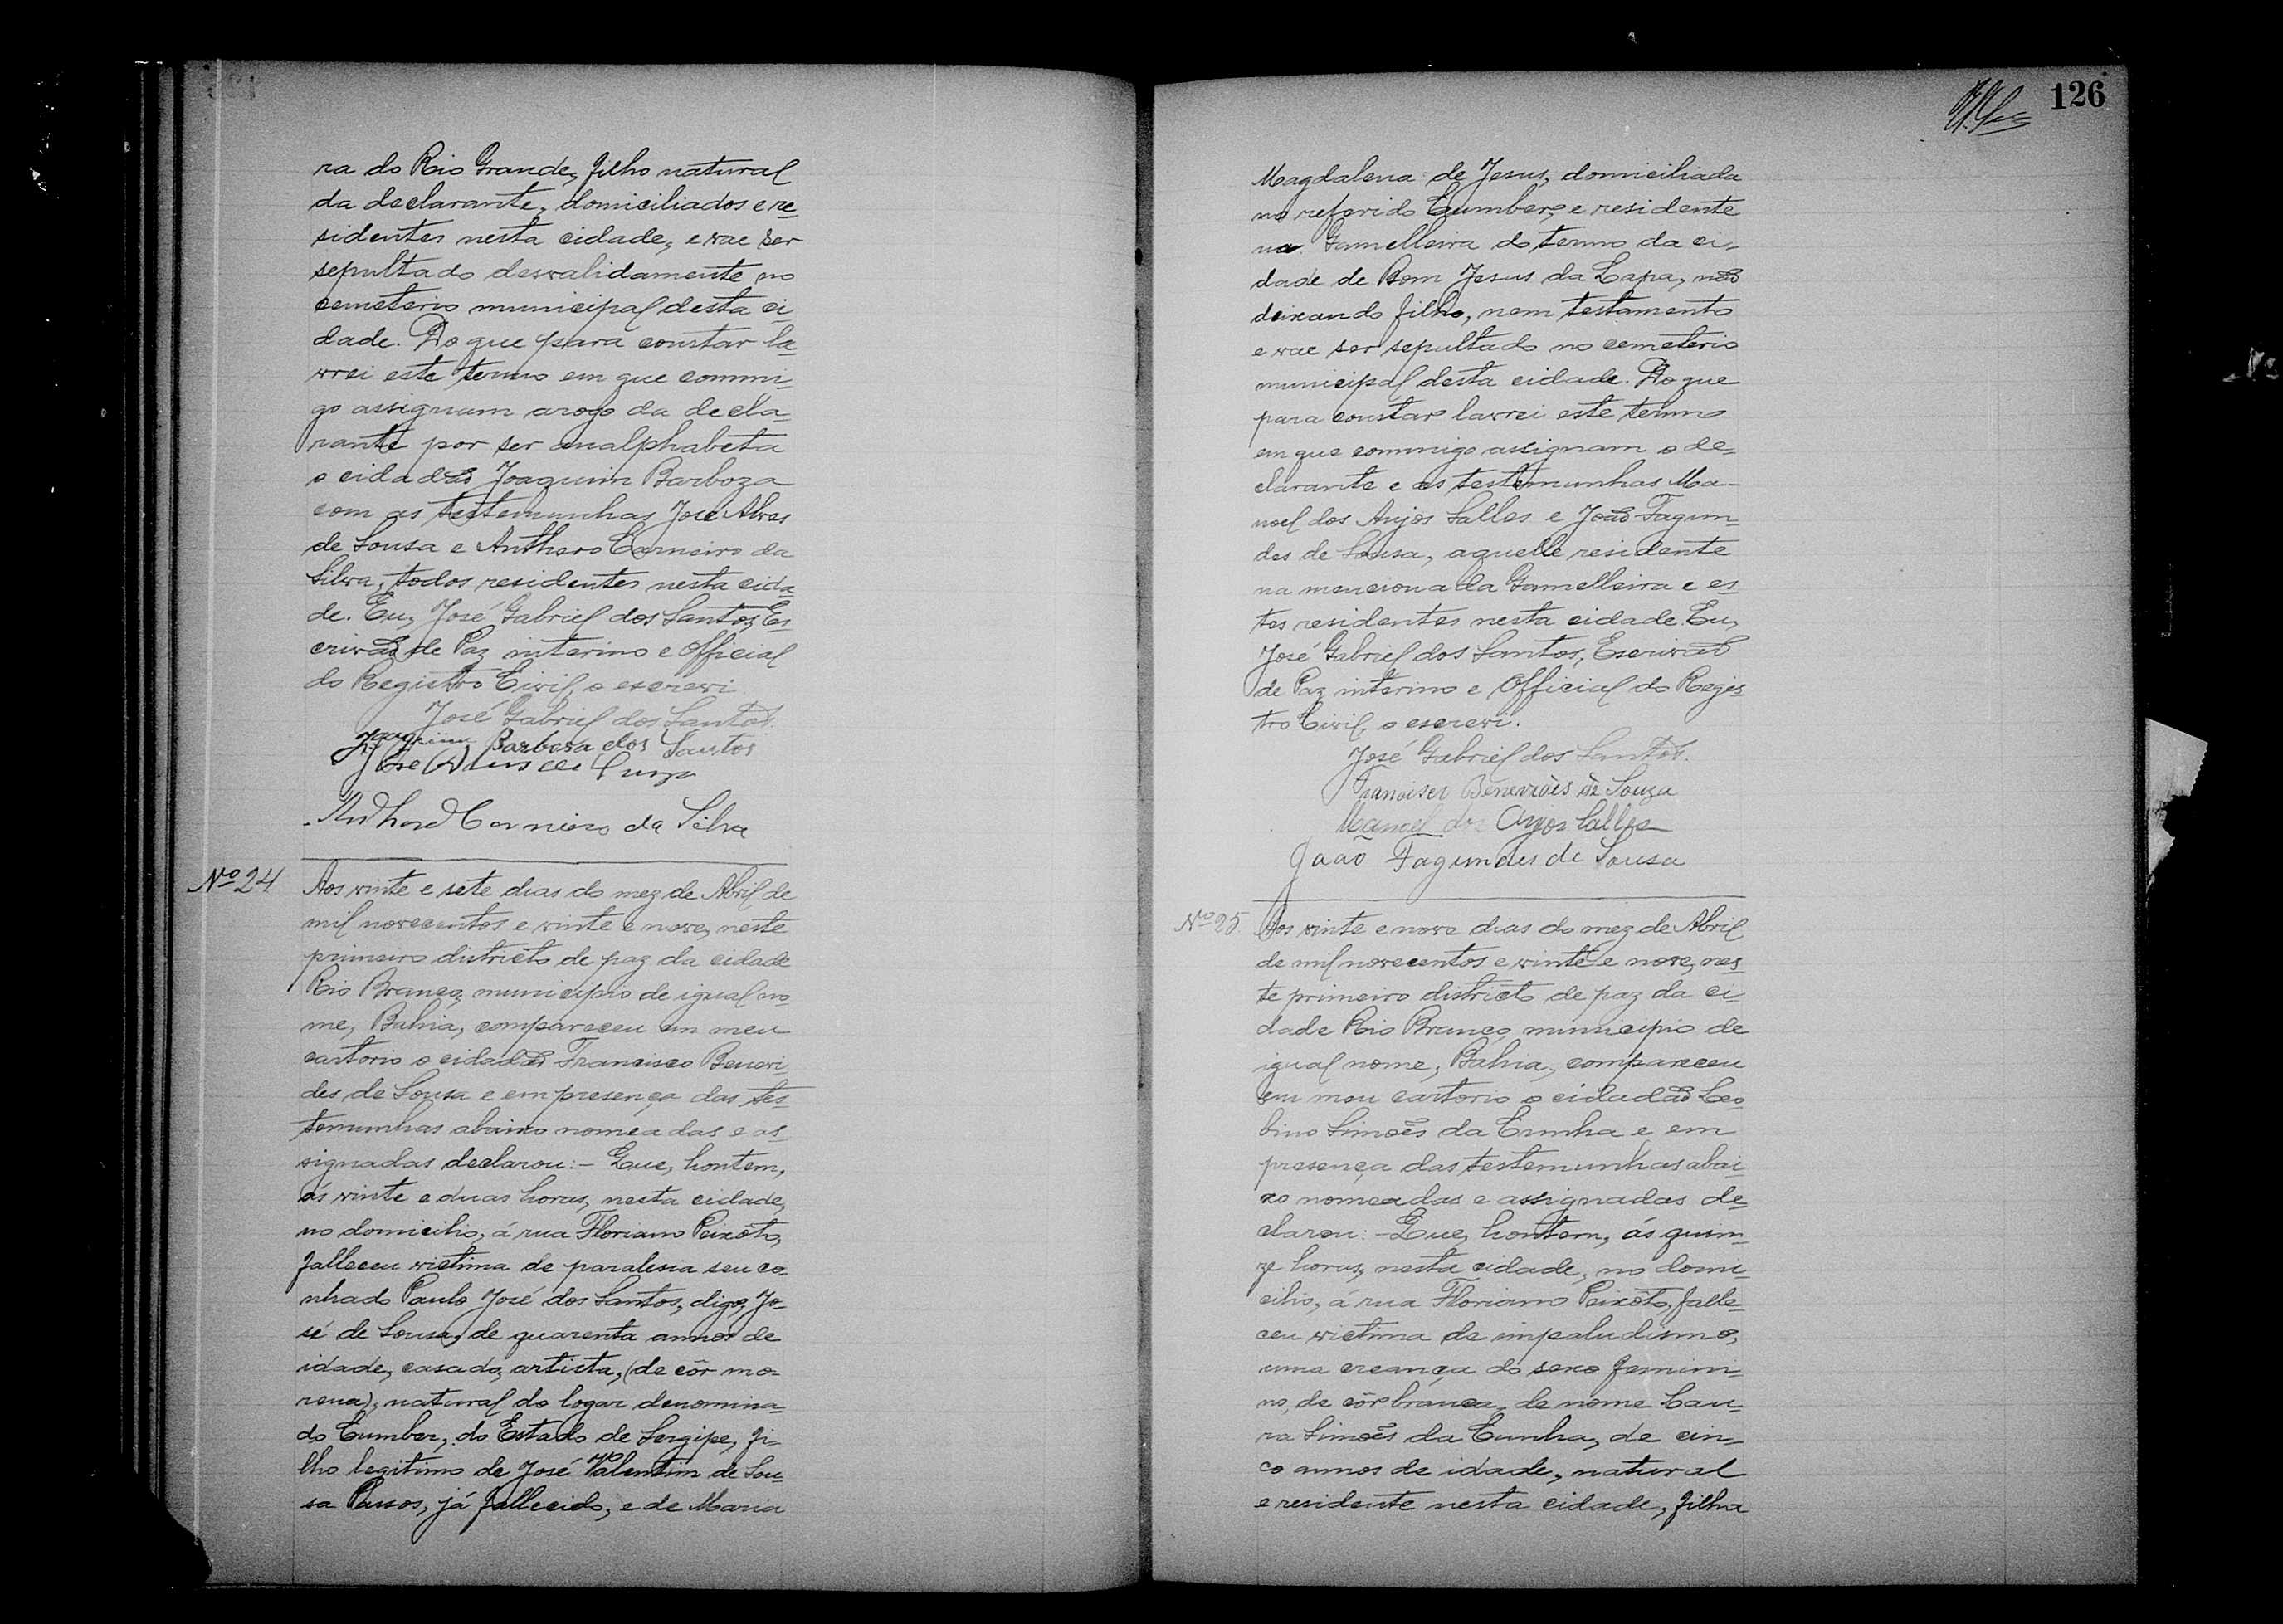 ra do Rio Grande, filho natural
da declarante, domiciliados e re-
sidentes nesta cidade, e vae ser
sepultado desvalidamente no
cemeterio municipal desta ci-
dade. Do que para constar la-
vrei este termo em que commi-
go assignam arogo da decla-
rante por ser analphabeta
o cidadão Joaquim Barboza
com as testemunhas José Alves
de Sousa e Anthero Carneiro da
Silva, todos residentes nesta cida-
de. Eu, José Gabriel dos Santos, Es-
crivão de Paz interino e Official
do Registro Civil, o escrevi
José Gabriel dos Santos.
Joaquim Barbosa dos Santos
José Alves de Souza
Anthero Carneiro da Silva
Nº 24
Aos vinte e sete dias do mez de Abril de
mil novecentos e vinte e nove, neste
primeiro districto de paz da cidade
Rio Branco, municipio de igual no-
me, Bahia, compareceu em meu
cartorio o cidadão Francisco Benevi-
des de Sousa e em presença das tes-
temunhas abaixo nomeadas e as-
signadas declarou:- Que, hontem,
ás vinte e duas horas, nesta cidade,
no domicilio, á rua Floriano Peixôto,
falleceu victima de paralesia seu co-
nhado Paulo José dos Santos, digo, Jo-
sé de Sousa, de quarenta annos de
idade, casado, artista, (de côr mo-
rena), natural do logar denomina-
do Cumber, do Estado de Sergipe, fi-
lho legitimo de José Valentim de Sou-
sa Passos, já fallecido, e de Maria
126
Magdalena de Jesus, domiciliada
no referido Cumber, e residente
na Gamelleira do termo da ci-
dade de Bom Jesus da Lapa, não
deixando filho, nem testamento
e vae ser sepultado no cemeterio
municipal desta cidade. Do que
para constar lavrei este termo
em que commigo assignam o de-
clarante e as testemunhas Ma-
noel dos Anjos Salles e João Fagun-
des de Sousa, aquelle residente
na mencionada Gamelleira e es-
tes residentes nesta cidade. Eu,
José Gabriel dos Santos, Escrivão
de Paz interino e Official do Regis-
tro Civil, o escrevi.
José Gabriel dos Santos.
Francisco Benevides de Souza
Manoel dos Anjos Salles
João Fagundes de Sousa
Nº 25.
Aos vinte e nove dias do mez de Abril
de mil novecentos e vinte e nove, nes-
te primeiro districto de paz da ci-
dade Rio Branco, municipio de
igual nome, Bahia, compareceu
em meu cartorio o cidadão Leo-
bino Simões da Cunha e em
presença das testemunhas abai-
xo nomeadas e assignadas de-
clarou:- Que, hontem, ás quin-
ze horas, nesta cidade, no domi-
cilio, á rua Floriano Peixôto, falle-
ceu victima de impaludismo,
uma creança do sexo femini-
no, de côr branca, de nome Lau-
ra Simões da Cunha, de cin-
co annos de idade, natural
e residente nesta cidade, filha